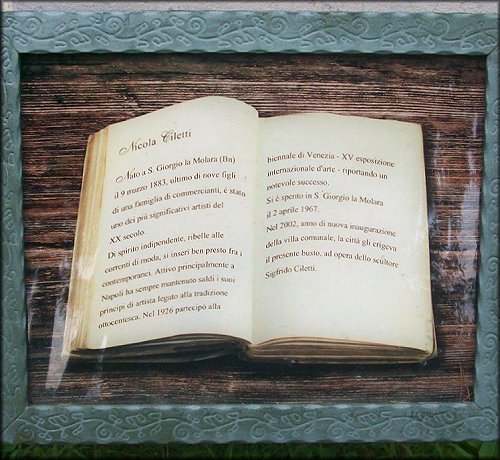 Nicola Ciletti
Nato a S. Giorgio la Molara (Bn)
il 9 marzo 1883, ultimo di nove figli
di una famiglia di commercianti, é stato
uno dei più significativi artisti del
XX secolo.
Di spirito indipendente, ribelle alle
correnti di moda, si inserì ben presto fra i
contemporanei. Attivo principalmente a
Napoli ha sempre mantenuto saldi i suoi
principi di artista legato alla tradizione
ottocentesca. Nel 1926 partecipò alla
biennale di Venezia - XV esposizione
internazionale d'arte - riportando un
notevole successo.
Si é spento in S. Giorgio la Molara
il 2 aprile 1967.
Nel 2002, anno di nuova inaugurazione
della villa comunale, la città gli erigeva
il presente busto, ad opera dello scultore
Sigfrido Ciletti.